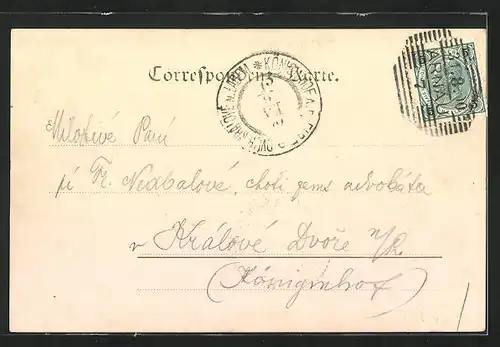 Correspondenz-Karte.
Milostivé Paní
pí Fr. Nedbalové, choti pems advokáta
v Králové Dvoře n/L.
(Königinhof)